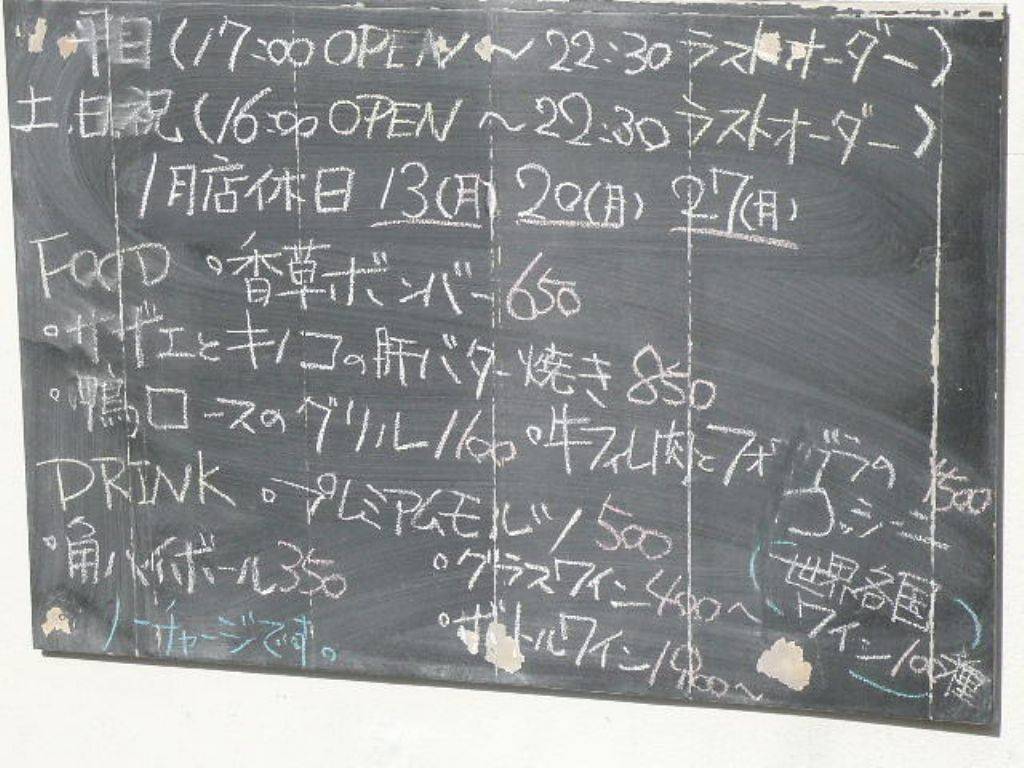 平日(17:00 OPEN ~ 22:30 ラストオーダー)
土.日.祝(16:00 OPEN ~ 22:30 ラストオーダー)
1月店休日 13(月) 20(月) 27(月)
FOOD ・香草ボンバー 650
・サザエとキノコの肝バター焼き 850
・鴨ロースのグリル 1100 ・牛フィレ肉とフォアグラの 1500
ロッシーニ
DRINK ・プレミアムモルツ 500
・角ハイボール 350 ・グラスワイン 400~
・ボトルワイン 1900~
(世界各国
ワイン100種)
ノーチャージです。